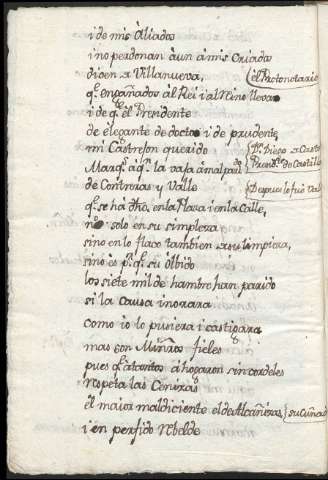 i de mis Aliados
i no perdonan àun à mis Criados
dicen a Villanueva, (el Protonotario
q̃ engañados al Rei i al Reino lleva
i de q̃ el Presidente
de elegante de docto i de prudente
mi Castrejon querido (Dn. Diego a Castr
Marq.s à q.n la baja Presid.te de Castilla
de Contreras y Valle (Despues lo fué Val
q̃ se há dho, en la Plaza i en la Calle,
no solo en su simpleza
sino en lo flaco tambien a su limpieza,
sino es p.r q̃ su Olbido
los siete mil de hambre han parido
si la causa inorara
como io lo pusiera i castigara
mas son Miñãos fieles
pues q̃ à tantos ahogaron sin cordeles
respeta las Ceniças
el maior maldiciente el de Alcañizes, (su Cuñad
i en perfido Rebelde